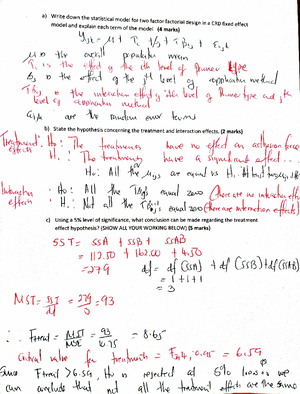 a) Write down the statistical model for two factor factorial design in a CRD fixed effect
model and explain each term of the model (4 marks)
Yijk = μ + Ti + βj + Tβij + Eijk
μ is the overall population mean
Ti is the effect of the ith level of Primer type
βj is the effect of the jth level of application method
Tβij is the interaction effect of ith level of Primer type and jth
level of application method
Eijk are the random error terms
b) State the hypothesis concerning the treatment and interaction effects. (2 marks)
Treatment effects: Ho: The treatments have no effect on adhesion force
H1: The treatments have a significant effect
Ho: All the μij,s are equal vs H1:
Interaction effects Ho: All the Tβij,s equal zero (there are no interaction eff
H1: Not all the Tβij,s equal zero (there are interaction effects)
c) Using a 5% level of significance, what conclusion can be made regarding the treatment
effect hypothesis? (SHOW ALL YOUR WORKING BELOW) (5 marks)
SST = SSA + SSB + SSAB
= 112.50 + 162.00 + 4.50
= 279
df = df (SSA) + df (SSB) + df (SSAB)
= 1 + 1 + 1
= 3
MST = SST/df = 279/3 = 93
∴ Ftreat = MST/MSE = 93/10.75 = 8.65
Critical value for treatments = F3,4,0.95 = 6.59
Since Ftreat > 6.59, Ho is rejected at 5% l.o.s. we
can conclude that not all the treatment effects are the same